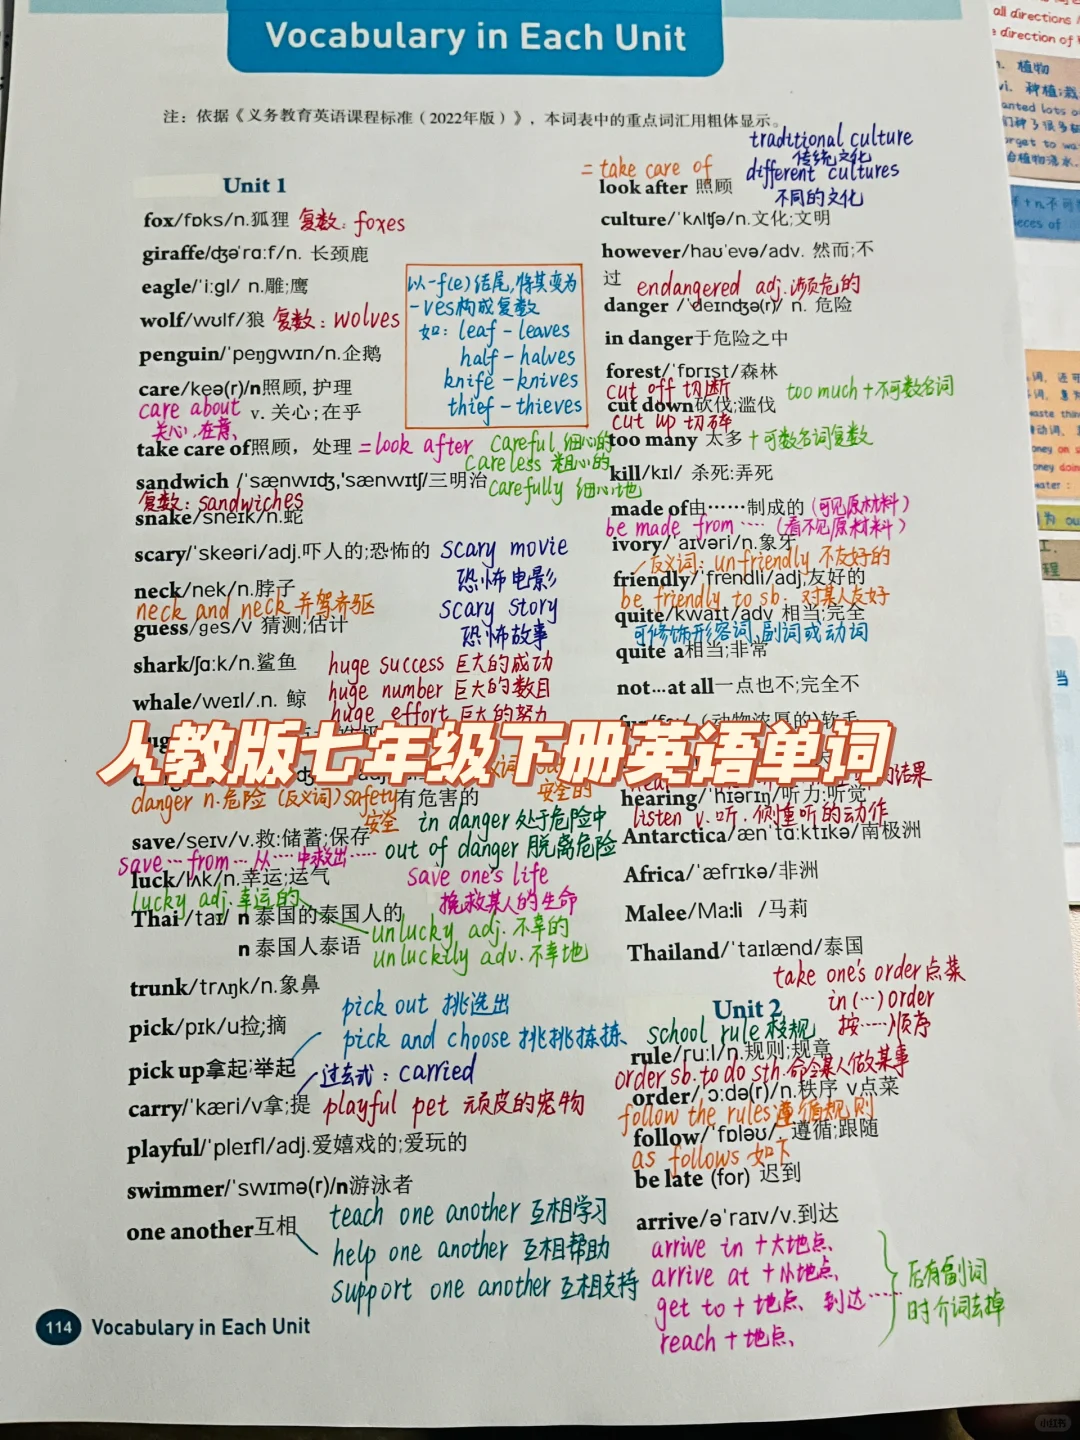 Vocabulary in Each Unit
注：依据《义务教育英语课程标准（2022年版）》，本词表中的重点词汇用粗体显示。
Unit 1
fox/fɒks/n.狐狸 复数：foxes
giraffe/dʒəˈrɑːf/n. 长颈鹿
eagle/ˈiːgl/ n.雕;鹰
wolf/wʊlf/狼 复数：wolves
以-f(e)结尾,将其变为
-ves构成复数
如：leaf-leaves
half-halves
knife-knives
thief-thieves
penguin/ˈpeŋgwɪn/n.企鹅
care/keə(r)/n照顾,护理
care about v. 关心;在乎
关心,在意
take care of照顾，处理 =look after
careful 细心的
careless 粗心的
carefully 细心地
sandwich /ˈsænwɪdʒ,ˈsænwɪtʃ/三明治
复数：sandwiches
snake/sneɪk/n.蛇
scary/ˈskeəri/adj.吓人的;恐怖的 scary movie
恐怖电影
scary story
恐怖故事
neck/nek/n.脖子
neck and neck 并驾齐驱
guess/ges/v 猜测;估计
shark/ʃɑːk/n.鲨鱼
huge success 巨大的成功
whale/weɪl/.n. 鲸
huge number 巨大的数目
huge effort 巨大的努力
人教版七年级下册英语单词
danger n.危险 (反义词) safety 有危害的
安全
安全的
in danger 处于危险中
save/seɪv/v.救;储蓄;保存
out of danger 脱离危险
save…from…从……中救出……
luck/lʌk/n.幸运;运气
save one's life
挽救某人的生命
lucky adj.幸运的
Thai /taɪ/ n 泰国的泰国人的
n 泰国人泰语
unlucky adj. 不幸的
unluckily adv. 不幸地
trunk/trʌŋk/n.象鼻
pick/pɪk/u捡;摘
pick out 挑选出
pick and choose 挑挑拣拣
pick up拿起;举起
过去式：carried
carry/ˈkæri/v拿;提
playful pet 顽皮的宠物
playful/ˈpleɪfl/adj.爱嬉戏的;爱玩的
swimmer/ˈswɪmə(r)/n游泳者
one another互相
teach one another 互相学习
help one another 互相帮助
support one another 互相支持
= take care of
look after 照顾
traditional culture
传统文化
different cultures
不同的文化
culture/ˈkʌltʃə/n.文化;文明
however/haʊˈevə/adv. 然而;不
过
endangered adj.濒危的
danger /ˈdeɪndʒə(r)/ n. 危险
in danger于危险之中
forest/ˈfɒrɪst/森林
cut off 切断
cut down砍伐;滥伐
cut up 切碎
too much+不可数名词
too many 太多 +可数名词复数
kill/kɪl/ 杀死;弄死
made of由……制成的 (可见原材料)
be made from…… (看不见原材料)
ivory/ˈaɪvəri/n.象牙
反义词：un-friendly 不友好的
friendly/ˈfrendli/adj,友好的
be friendly to sb. 对某人友好
quite/kwaɪt/adv 相当;完全
可修饰形容词,副词或动词
quite a相当;非常
not…at all一点也不;完全不
hearing/ˈhɪərɪŋ/听力;听觉
listen v.听,侧重听的动作
Antarctica/ænˈtɑːktɪkə/南极洲
Africa/ˈæfrɪkə/非洲
Malee/Maːli /马莉
Thailand/ˈtaɪlænd/泰国
take one's order 点菜
in (…) order
按……顺序
Unit 2
school rule 校规
rule/ruːl/n.规则;规章
order sb. to do sth. 命令某人做某事
order/ˈɔːdə(r)/n.秩序 v点菜
follow the rules 遵循规则
follow/ˈfɒləʊ/. 遵循;跟随
as follows 如下
be late (for) 迟到
arrive/əˈraɪv/v.到达
arrive in +大地点
arrive at +小地点
get to + 地点 到达……
reach + 地点
后有副词
时介词去掉
114 Vocabulary in Each Unit
all directions
direction of
n. 植物
vi. 种植;栽
小红书